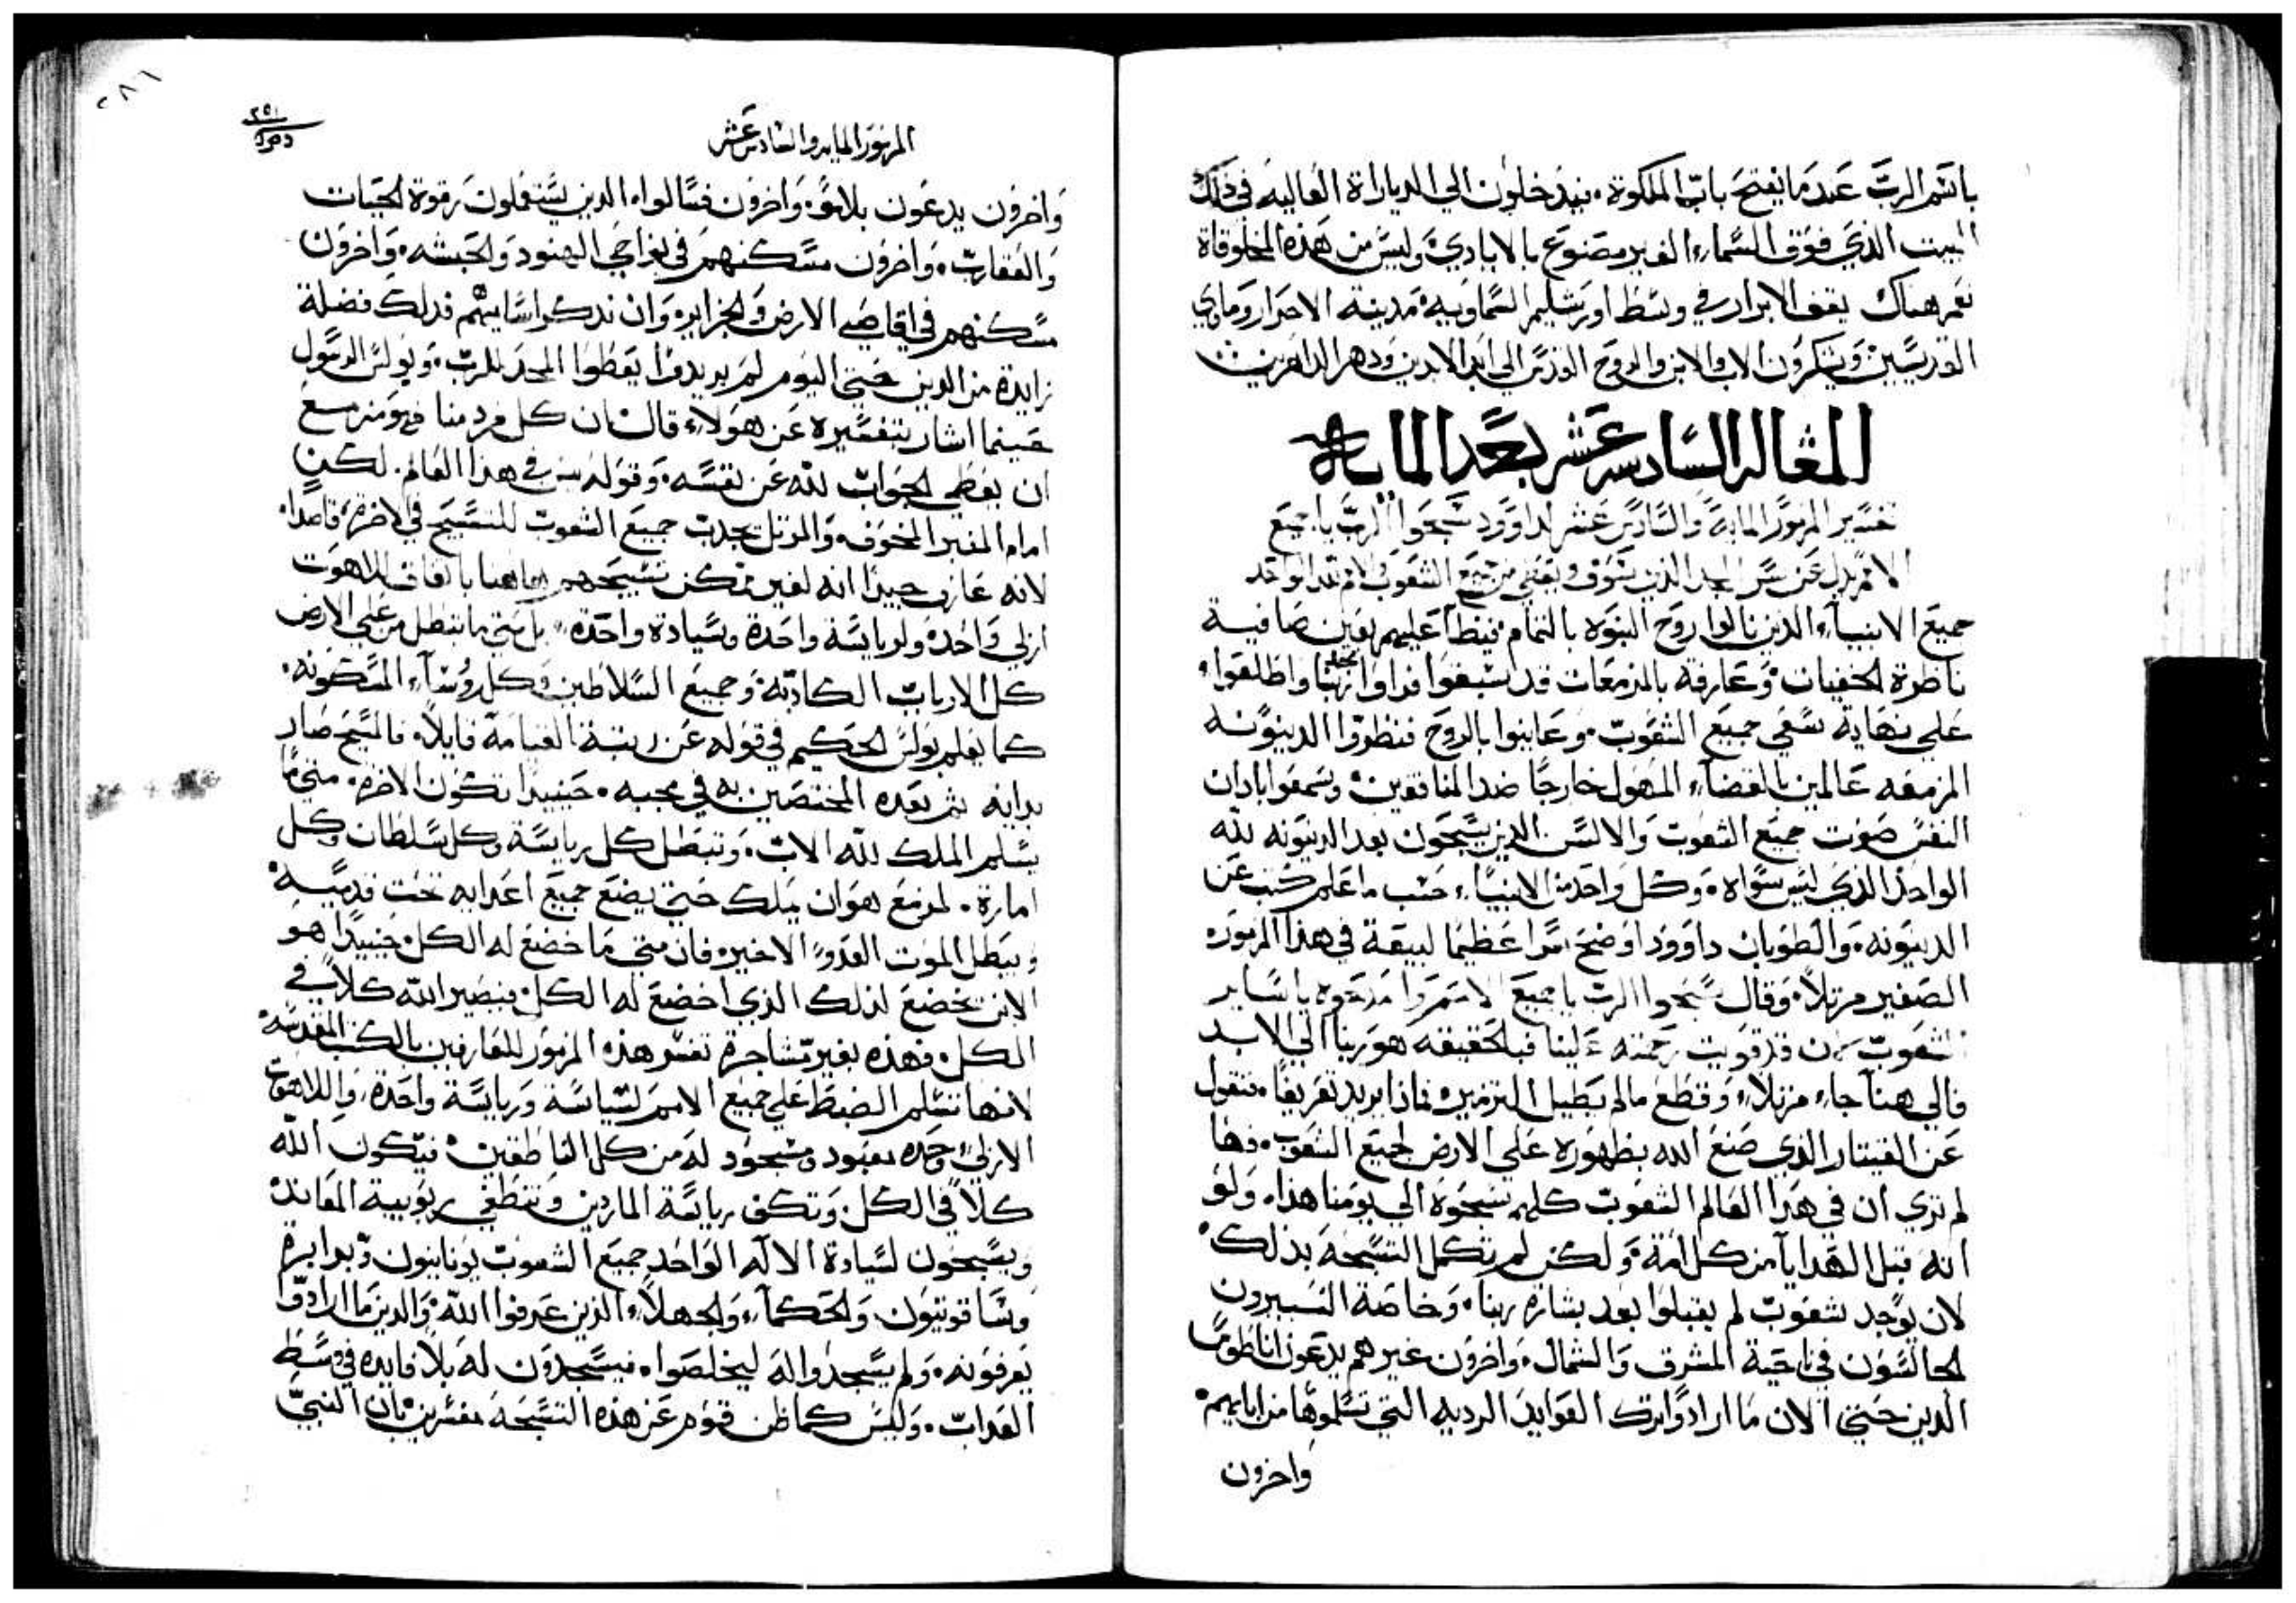 باسم الرب عندما يفتح باب الملكوة. فيدخلون الي الديارات العاليه في ذلك
البيت الذي فوق السماء الغير مصنوع بالايادي وليس من هذه المخلوقاة
نعم هناك يقف الابرار في وسط اورشليم السماوييه مدينة الاحرار وماوي
القديسين ويشكرون الاب والابن والروح القدس الي ابد الابدين ودهر الداهرين
المقاله السادسه عشر بعد المايه
تفسير المزمور المايه والسادس عشر لداوود سبحوا الرب يا جميع
الامم يدل عن سر
جميع الانبياء الذين نالوا روح النبوه بالتمام فيظا عليهم بعين صافية
ناظرة الخفيات وعارفة بالمزمعات قد سبقوا فراوا واطلعوا
علي نهاية سعي جميع الشعوب. وعاينوا بالروح فنظروا الدينونه
المزمعه عالمين بالقضاء المهول خارجا ضد المنافقين وسمعوا باذان
النفس صوت جميع الشعوب والالسن الذين يسبحون بعد الدينونه لله
الواحد الذي ليس سواه. وكل واحد من الانبياء حسب ما علم كتب عن
الدينونه. والطوبان داوود اوضح سرا عظيما لبيعة في هذا المزمور
الصغير مرتلا. وقال سبحوا الرب يا جميع الامم وامدحوه يا ساير
الشعوب لان قد قويت رحمته علينا فبالحقيقه هو ربنا الي الابد
فالي هنا جاء مرتلا، وقطع ما لم يطيل الترميز فماذا يريد تعريفا. فنقول
عن الذي صنع الله بظهوره علي الارض لجميع الشعوب. فها
لم نري ان في هذا العالم الشعوب كلهم سبحوه الي يومنا هذا. ولو
انه قبل الهدايا من كل امة ولكن لم تكمل التسبحة بذلك
لان يوجد شعوب لم يقبلوا بعد بشارة ربنا. وخاصة
الجالسون في ناحية المشرق والشمال. واخرون غيرهم يدعون
الذين حتي الان ما ارادوا ترك العوايد الرديه التي تسلموها من ابايهم
واخرون
المزمور المايه والسادس عشر
واخرون يدعون واخرون الذين يستعملون رقوة الحيات
والعقارب. واخرون مسكنهم في نواحي الهنود والحبشه. واخرون
مسكنهم في اقاصي الارض والجزاير. وان نذكر اساميهم فذلك فضلة
زايدة من الذين حتي اليوم لم يريدوا يعطوا المجد للرب. وبولس الرسول
حينما اشار بتفسيره عن هولاء قال ان كل فرد منا فهو مزمع
ان يعطي الجواب لله عن نفسه. وقوله في هذا العالم. لكن
امام المنبر المخوف. والمرتل يجدب جميع الشعوب للتسبيح في الاخرة قاصدا
لانه عارف جيدا انه لغير ممكن تسبيحهم هاهنا باتفاق للاهوت
ازلي واحد ولرياسة واحدة وسيادة واحدة بل متي ما تبطل من علي الارض
كل الارباب الكادبة. وجميع السلاطين وكل روساء المسكونه.
كما يعلم بولس الحكيم في قوله عن رتبة القيامة قايلا. فالمسيح صار
بدايه ثم بعده المختصين به في مجيه. حينيدا تكون الاخرة. متي ما
يسلم الملك لله الاب. وتبطل كل رياسة وكل سلطان وكل
امارة. لمزمع هو ان يملك حتي يضع جميع اعدايه تحت قدميه
ويبطل الموت العدو الاخير. فان متي ما خضع له الكل حينيدا هو
الابن يخضع لذلك الذي اخضع له الكل فيصير الله كلا في
الكل. فهذه بغير مشاجرة تفسر هذه المزمور للعارفين بالكتب المقدسه
لانها تسلم الضبط علي جميع الامم لسياسة ورياسة واحدة. واللاهوت
الازلي وحده معبود ومسجود له من كل الناطقين فيكون الله
كلا في الكل. وتكف رياسة الماردين وتنطفي ربوبية المعاند
ويسبحون لسيادة الاله الواحد جميع الشعوب يونانيون وبرابرة
والحكماء والجهلاء الذين عرفوا الله والذين ما ارادوا
يعرفونه. ولم يسجدوا له ليخلصوا. فيسجدون له بلا فايده في وسط
العداب. وليس كما ظن قوم عن هذه التسبحة مفسرين بان النبي